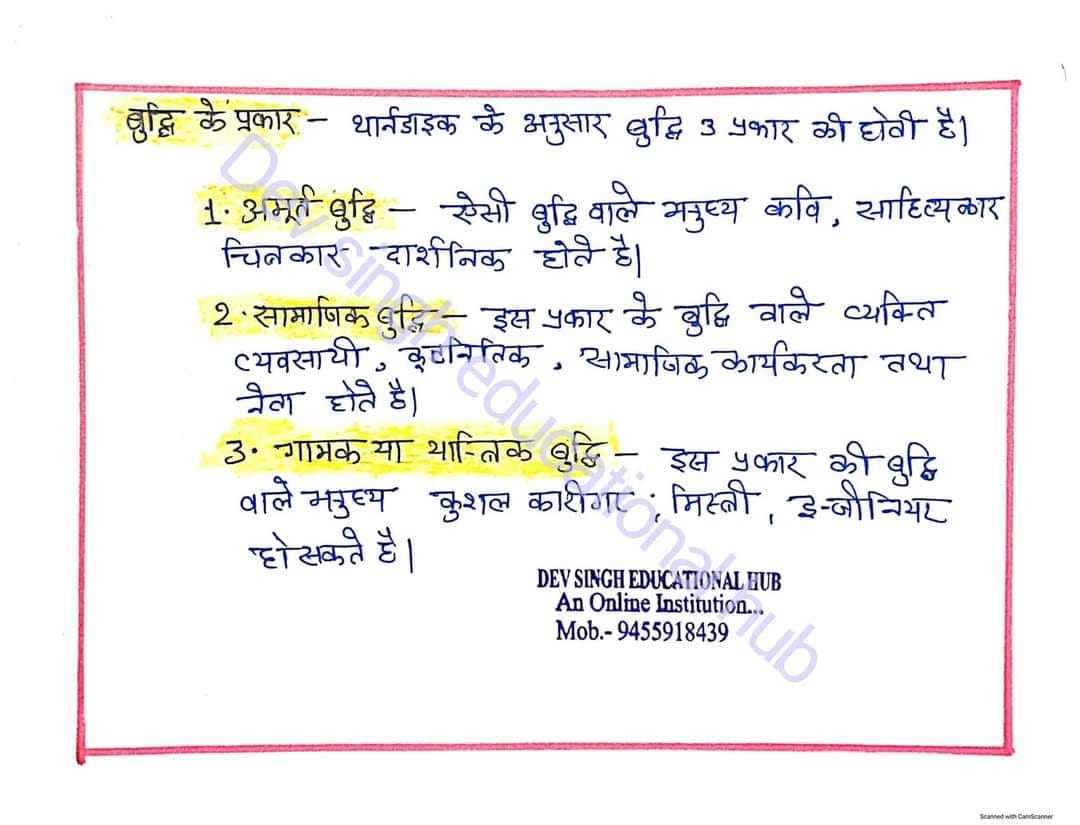 बुद्धि के प्रकार - थार्नडाइक के अनुसार बुद्धि 3 प्रकार की होती है।
1. अमूर्त बुद्धि - ऐसी बुद्धि वाले मनुष्य कवि, साहित्यकार
चित्रकार दार्शनिक होते है।
2. सामाजिक बुद्धि - इस प्रकार के बुद्धि वाले व्यक्ति
व्यवसायी, कूटनितिक, सामाजिक कार्यकरता तथा
नेता होते है।
3. गामक या यान्त्रिक बुद्धि - इस प्रकार की बुद्धि
वाले मनुष्य कुशल कारीगर, मिस्त्री, इन्जीनियर
हो सकते है।
DEV SINGH EDUCATIONAL HUB
An Online Institution...
Mob.- 9455918439
Dev singh educational hub
Scanned with CamScanner